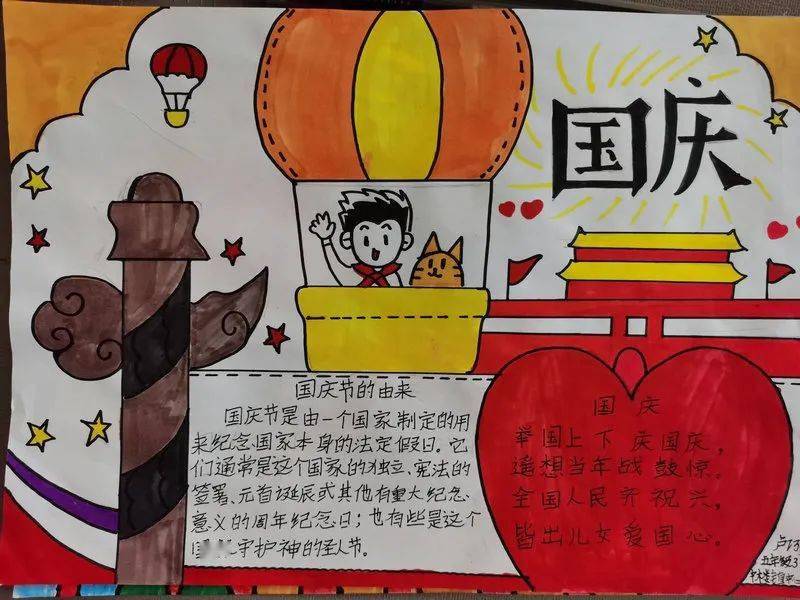 国庆
国庆节的由来
国庆节是由一个国家制定的用
来纪念国家本身的法定假日。它
们通常是这个国家的独立、宪法的
签署、元首诞辰或其他有重大纪念
意义的周年纪念日；也有些是这个
守护神的圣人节。
国庆
举国上下庆国庆，
遥想当年战鼓惊。
全国人民齐祝兴，
皆出儿女爱国心。
卢
五年级3